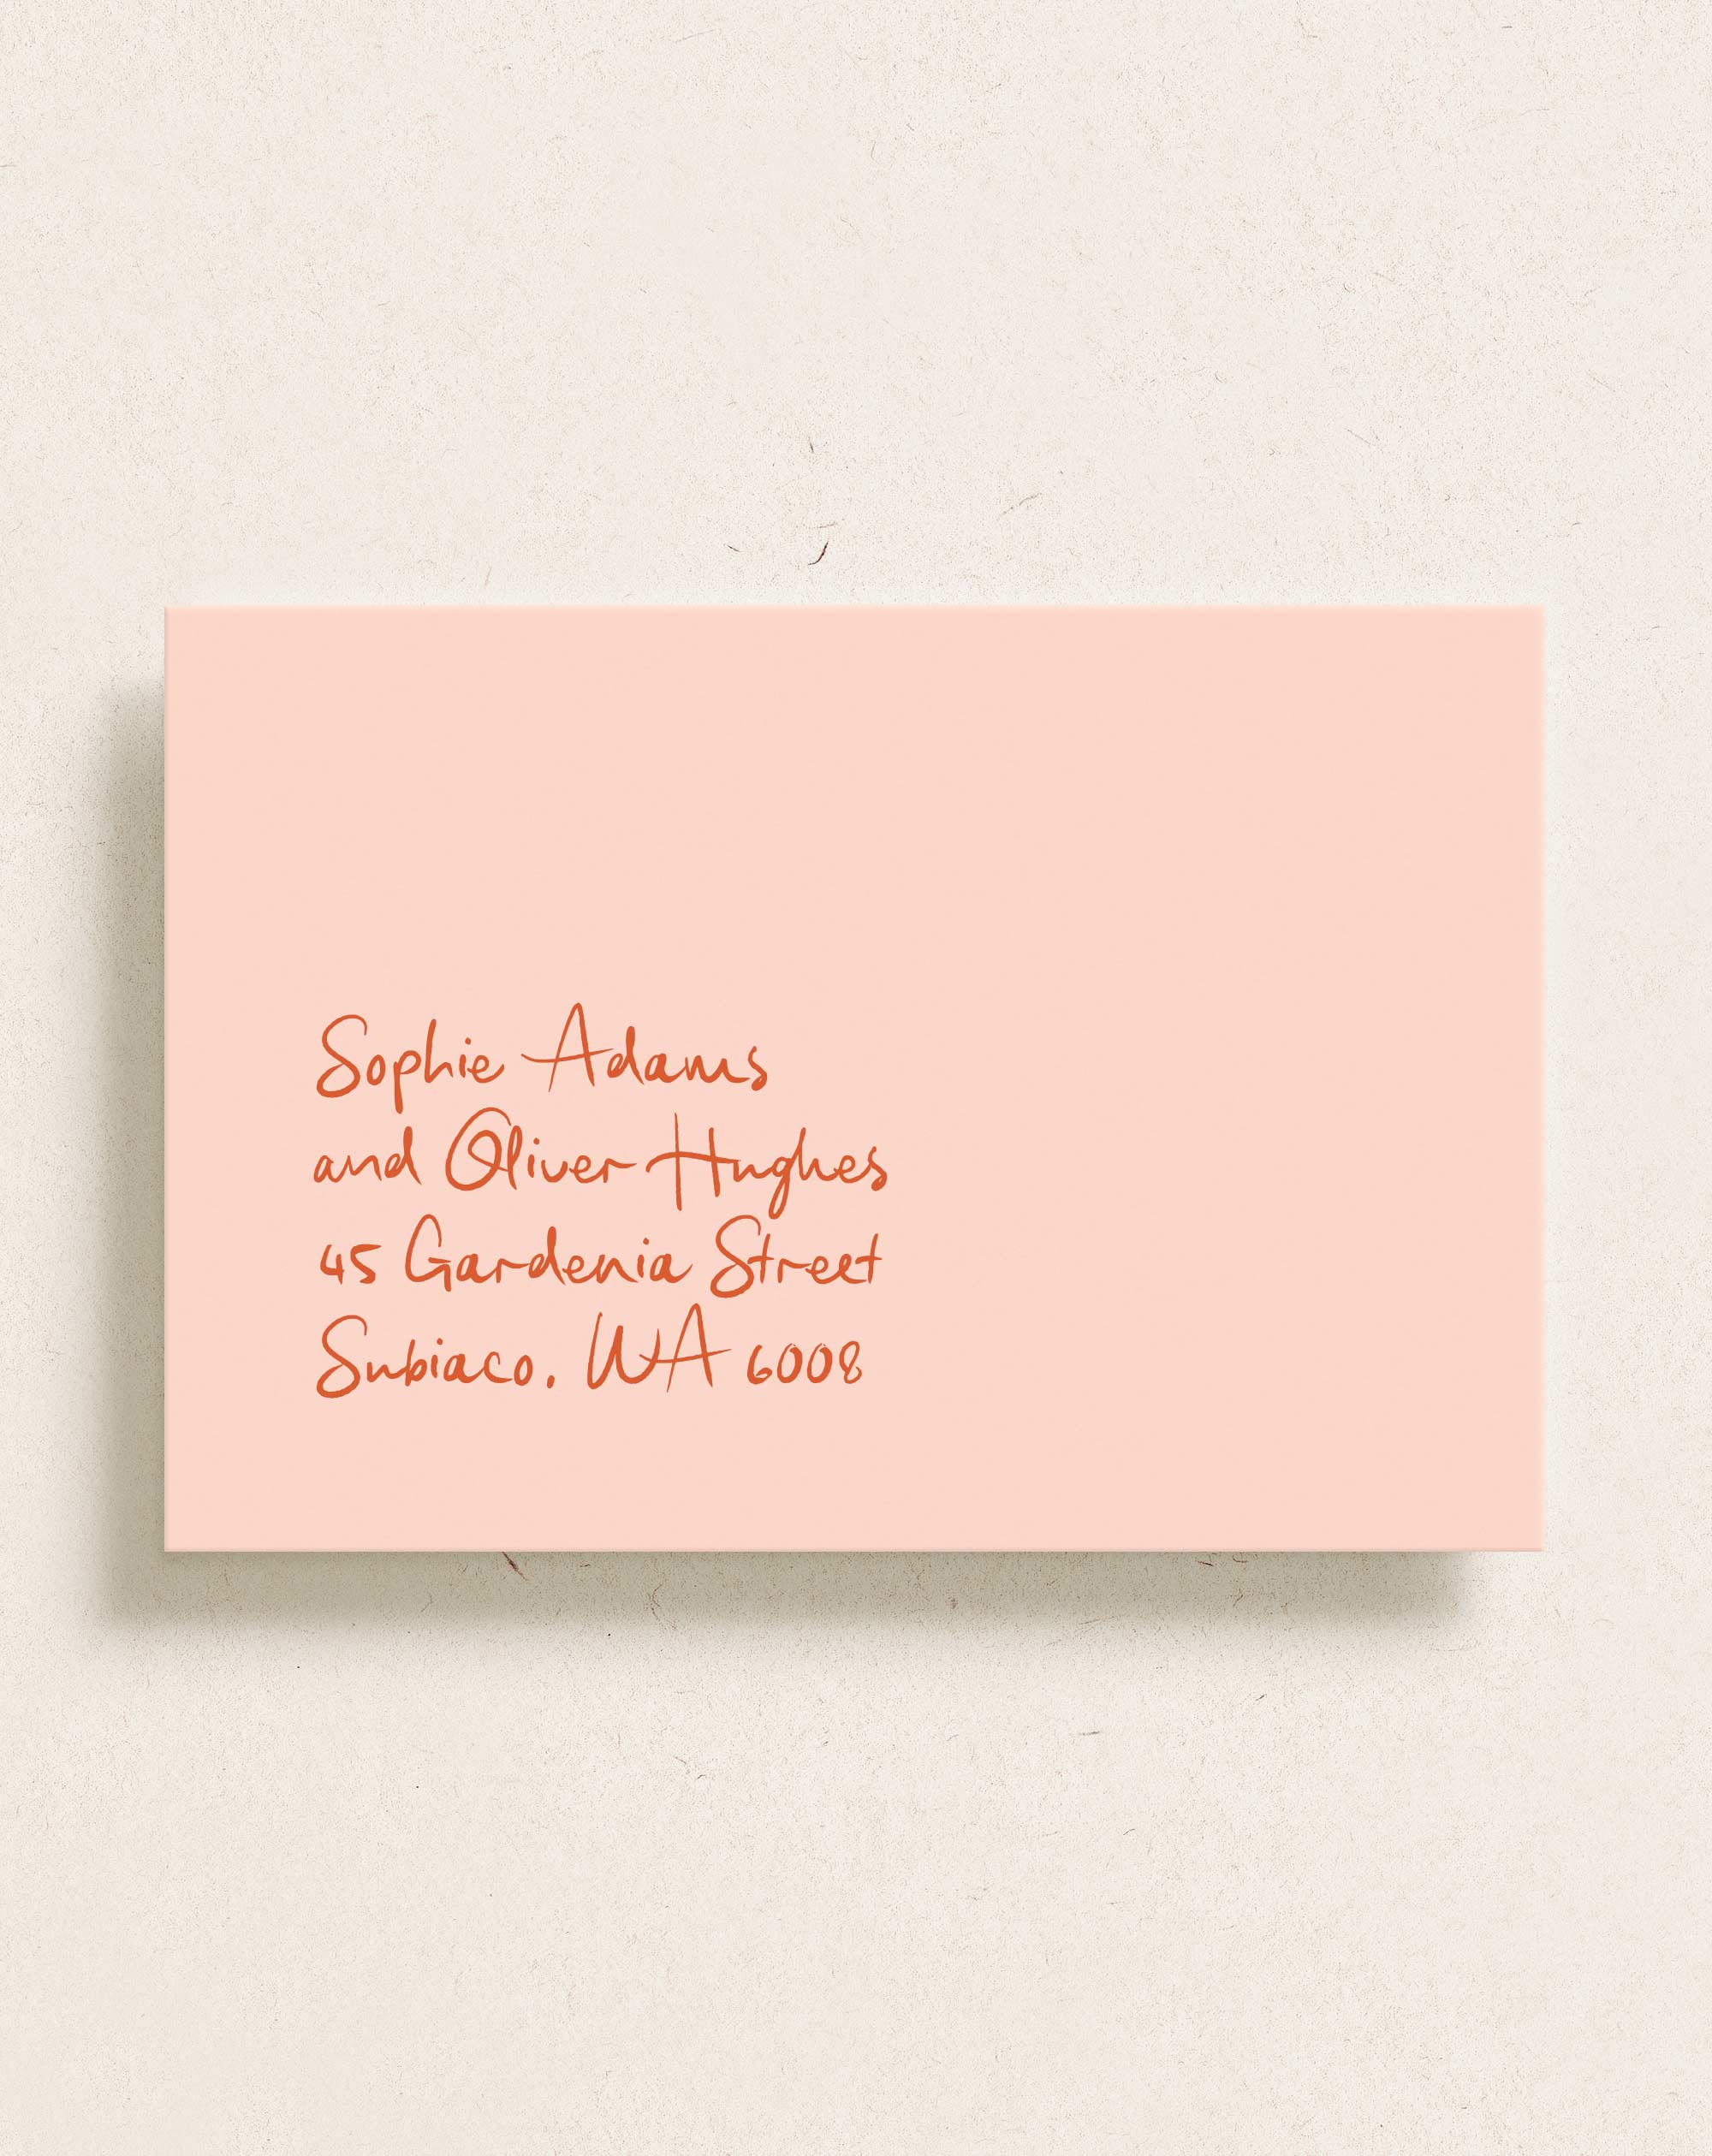 Sophie Adams
and Oliver Hughes
45 Gardenia Street
Subiaco. WA 6008